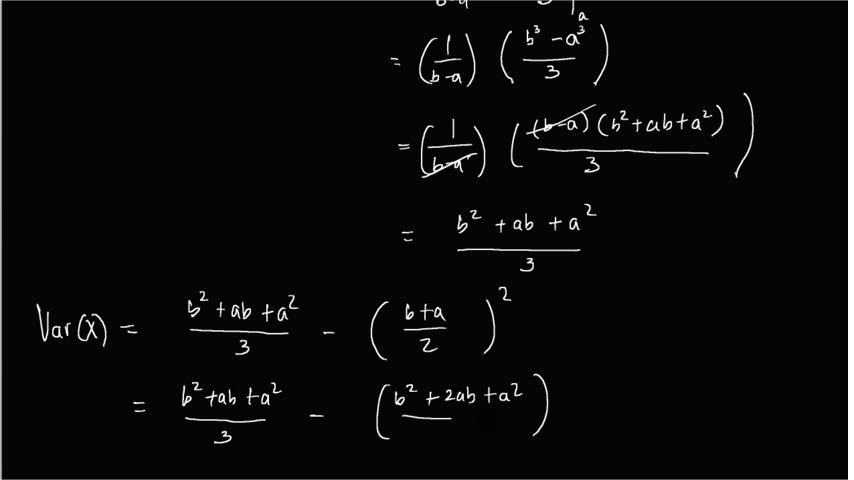 b-a 3 a
= (1/(b-a)) ((b³ - a³)/3)
= (1/(b-a)) ((b-a)(b² + ab + a²)/3)
= (b² + ab + a²)/3
Var(X) = (b² + ab + a²)/3 - ((b+a)/2)²
= (b² + ab + a²)/3 - (b² + 2ab + a²)